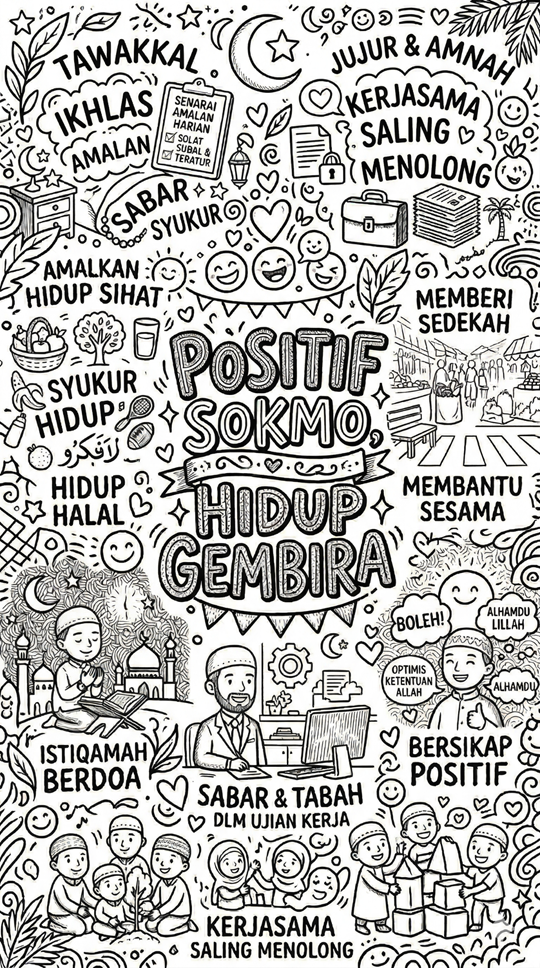 TAWAKKAL
IKHLAS
AMALAN
SENARAI
AMALAN
HARIAN
SOLAT
SUBAL &
TERATUR
JUJUR & AMNAH
KERJASAMA
SALING
MENOLONG
SABAR
SYUKUR
AMALKAN
HIDUP SIHAT
MEMBERI
SEDEKAH
POSITIF
SOKMO,
HIDUP
GEMBIRA
SYUKUR
HIDUP
HIDUP
HALAL
MEMBANTU
SESAMA
BOLEH!
ALHAMDU
LILLAH
OPTIMIS
KETENTUAN
ALLAH
ALHAMDU
ISTIQAMAH
BERDOA
SABAR & TABAH
DLM UJIAN KERJA
BERSIKAP
POSITIF
KERJASAMA
SALING MENOLONG